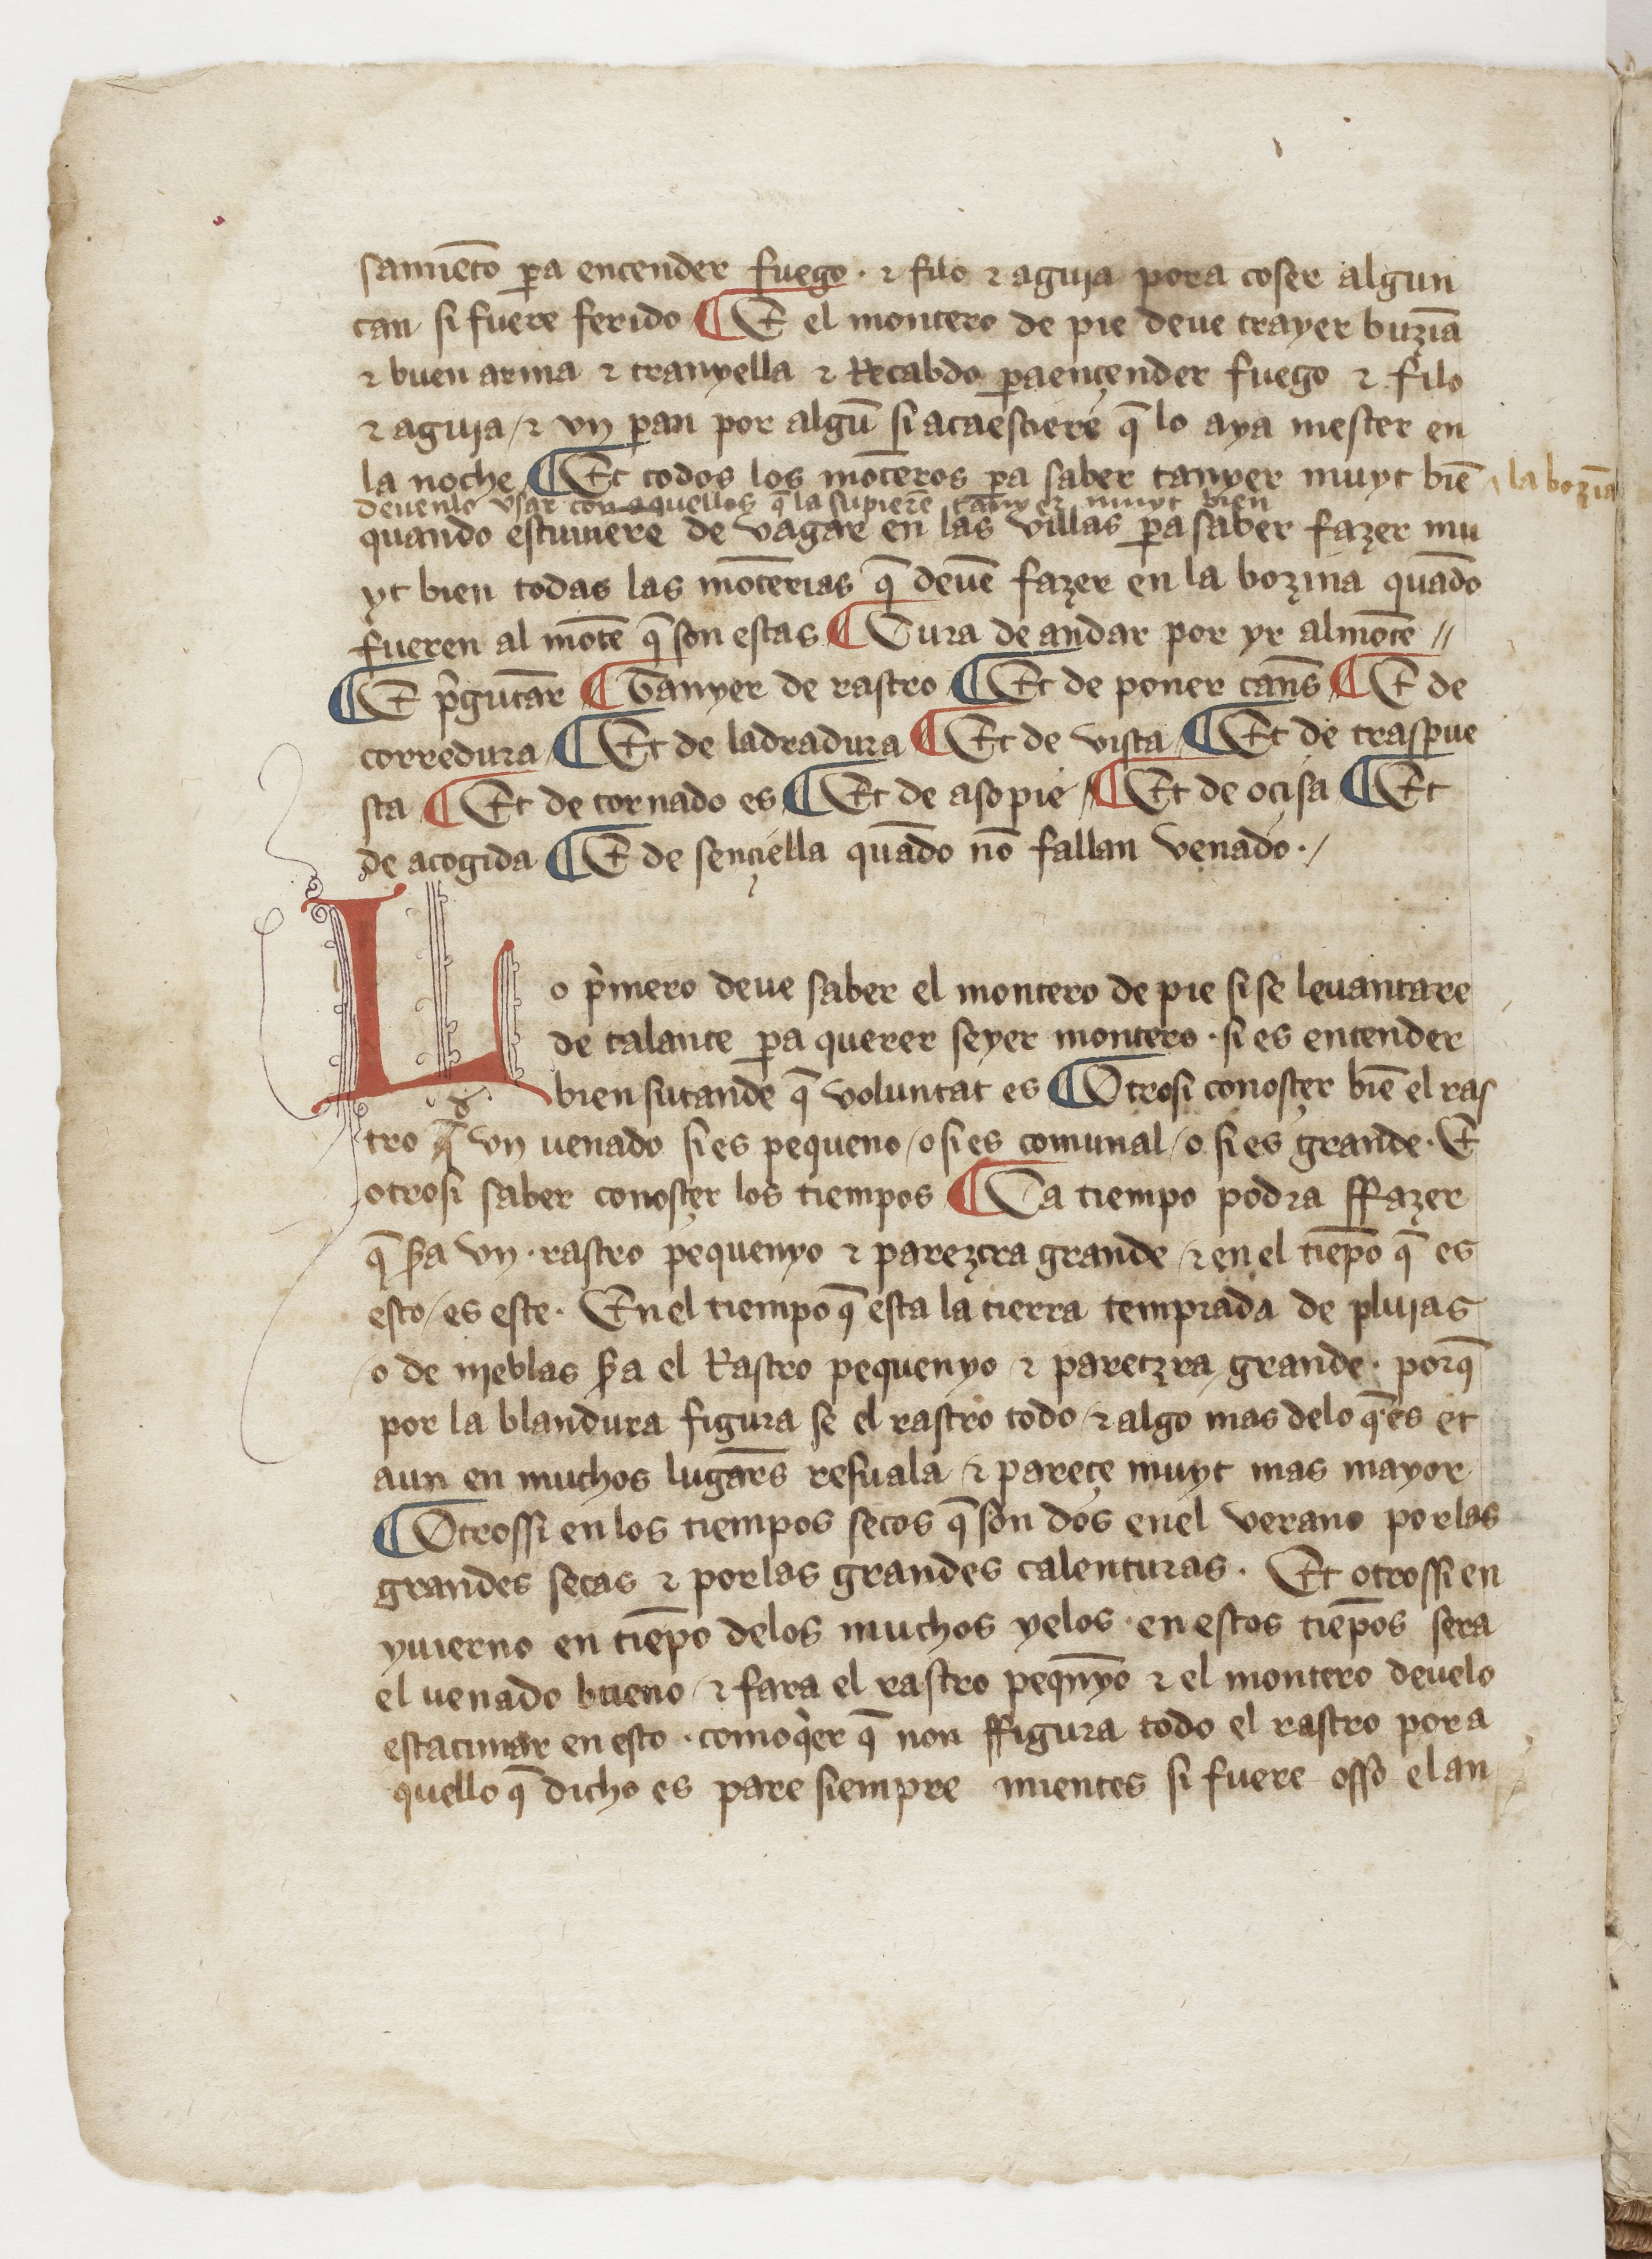 samieto pa encender fuego · ⁊ filo ⁊ aguja pora coser algun
can si fuere ferido ¶ Et el montero de pie deue trayer buzĩa
⁊ buen arma ⁊ tranyella ⁊ Recabdo pa ençender fuego ⁊ filo
⁊ aguja / ⁊ vn pan por algũ si acaesciere q̃ lo aya mester en
la noche ¶ Et todos los mõteros pa saber tanyer muyt biẽ la bozĩa
deuenlo vsar con aquellos q̃ la supierẽ tanyer muyt bien
quando estuuiere de vagar en las villas pa saber fazer mu
yt bien todas las mõterias q̃ deuẽ fazer en la bozina quãdo
fueren al mõte q̃ son estas ¶ Dura de andar por yr al mõte //
¶ Et p̃gũtar ¶ Tanyer de rastro ¶ Et de poner cañs ¶ Et de
corredura ¶ Et de ladradura ¶ Et de vista ¶ Et de traspue
sta ¶ Et de tornado es ¶ Et de asopie / ¶ Et de oçisa ¶ Et
de acogida ¶ Et de sençiella quãdo nõ fallan venado · /
Lo p̃mero deue saber el montero de pie si se leuantare
de talante pa querer seyer montero · si es entender
bien sutande q̃ voluntat es ¶ Otrosi conosçer biẽ el ras
tro d vn uenado si es pequeno / o si es comunal / o si es grande · Et
otrosi saber conosçer los tiempos ¶ Ca tiempo podra ffazer
q̃ s̃a vn · rastro pequenyo ⁊ parezcra grande / ⁊ en el tiẽpo q̃ es
esto / es este · En el tiempo q̃ esta la tierra temprada de plujas
o de njeblas s̃a el Rastro pequenyo ⁊ paretzra grande · porq̃
por la blandura figura se el rastro todo / ⁊ algo mas delo q̃ es et
aun en muchos lugar̃s resuala ⁊ pareçe muyt mas mayor
¶ Otrossi en los tiempos secos q̃ son dos enel verano por las
grandes secas ⁊ por las grandes calenturas · Et otrossi en
yuierno en tiẽpo delos muchos yelos · en estos tiẽpos sera
el uenado bueno / ⁊ fara el rastro peqũyo ⁊ el montero deuelo
estacimar en esto · como q̃er q̃ non ffigura todo el rastro por a
quello q̃ dicho es pare siempre mientes si fuere osso el an